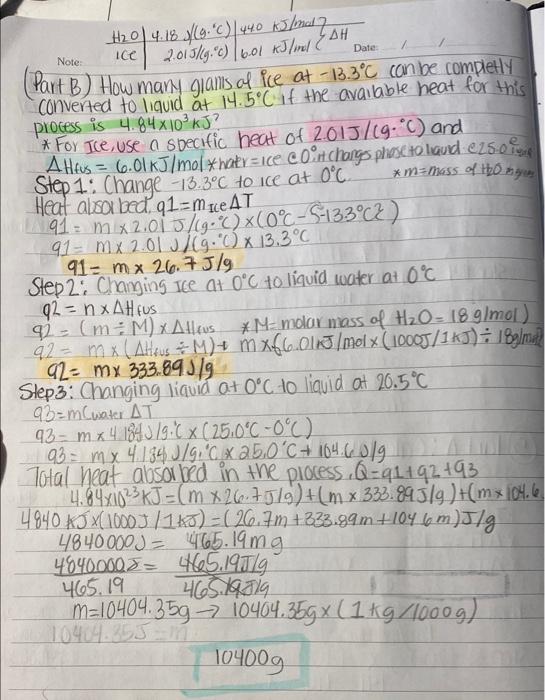 H2O | 4.18 J/(g·°C) | 440 KJ/mol ? } ΔH
Ice | 2.01J/(g·°C) | 6.01 KJ/mol
Note: Date: / /
(Part B) How many grams of Ice at -13.3°C can be completly
converted to liquid at 14.5°C if the available heat for this
process is 4.84x10³ KJ?
* For Ice, use a specific heat of 2.01J/(g·°C) and
ΔHfus = 6.01KJ/mol *natr=ice @ 0° it changes phase to liquid @25.0°
Step 1: Change -13.3°C to ice at 0°C. * m=mass of H2O in
Heat absorbed, q1=mIceΔT
q1= m x 2.01 J/(g·°C) x (0°C - 5-13.3°C2)
q1= m x 2.01 J/(g·°C) x 13.3°C
q1= m x 26.7 J/g
Step 2: Changing Ice at 0°C to liquid water at 0°C
q2 = n x ΔHfus
q2 = (m ÷ M) x ΔHfus * M= molar mass of H2O = (18 g/mol)
q2 = m x (ΔHfus ÷ M) + m x (6.01KJ/mol x (1000J/1KJ) ÷ 18g/mol)
q2 = m x 333.89 J/g
Step 3: Changing liquid at 0°C to liquid at 20.5°C
q3=mCwater ΔT
q3= m x 4.184J/g·°C x (25.0°C-0°C)
q3= m x 4.184J/g·°C x 25.0°C + 104.6 J/g
Total heat absorbed in the process, Q=q1+q2+q3
4.84x10^3 KJ=(m x 26.7J/g)+(m x 333.89J/g)+(m x 104.6
4840 KJ x (1000J/1KJ)=(26.7m+333.89m+104.6m)J/g
4840000J = 465.19mg
4840000J = 465.19J/g
465.19 465.19J/g
m=10404.35g → 10404.35g x (1kg/1000g)
10404.35J = m
10400g